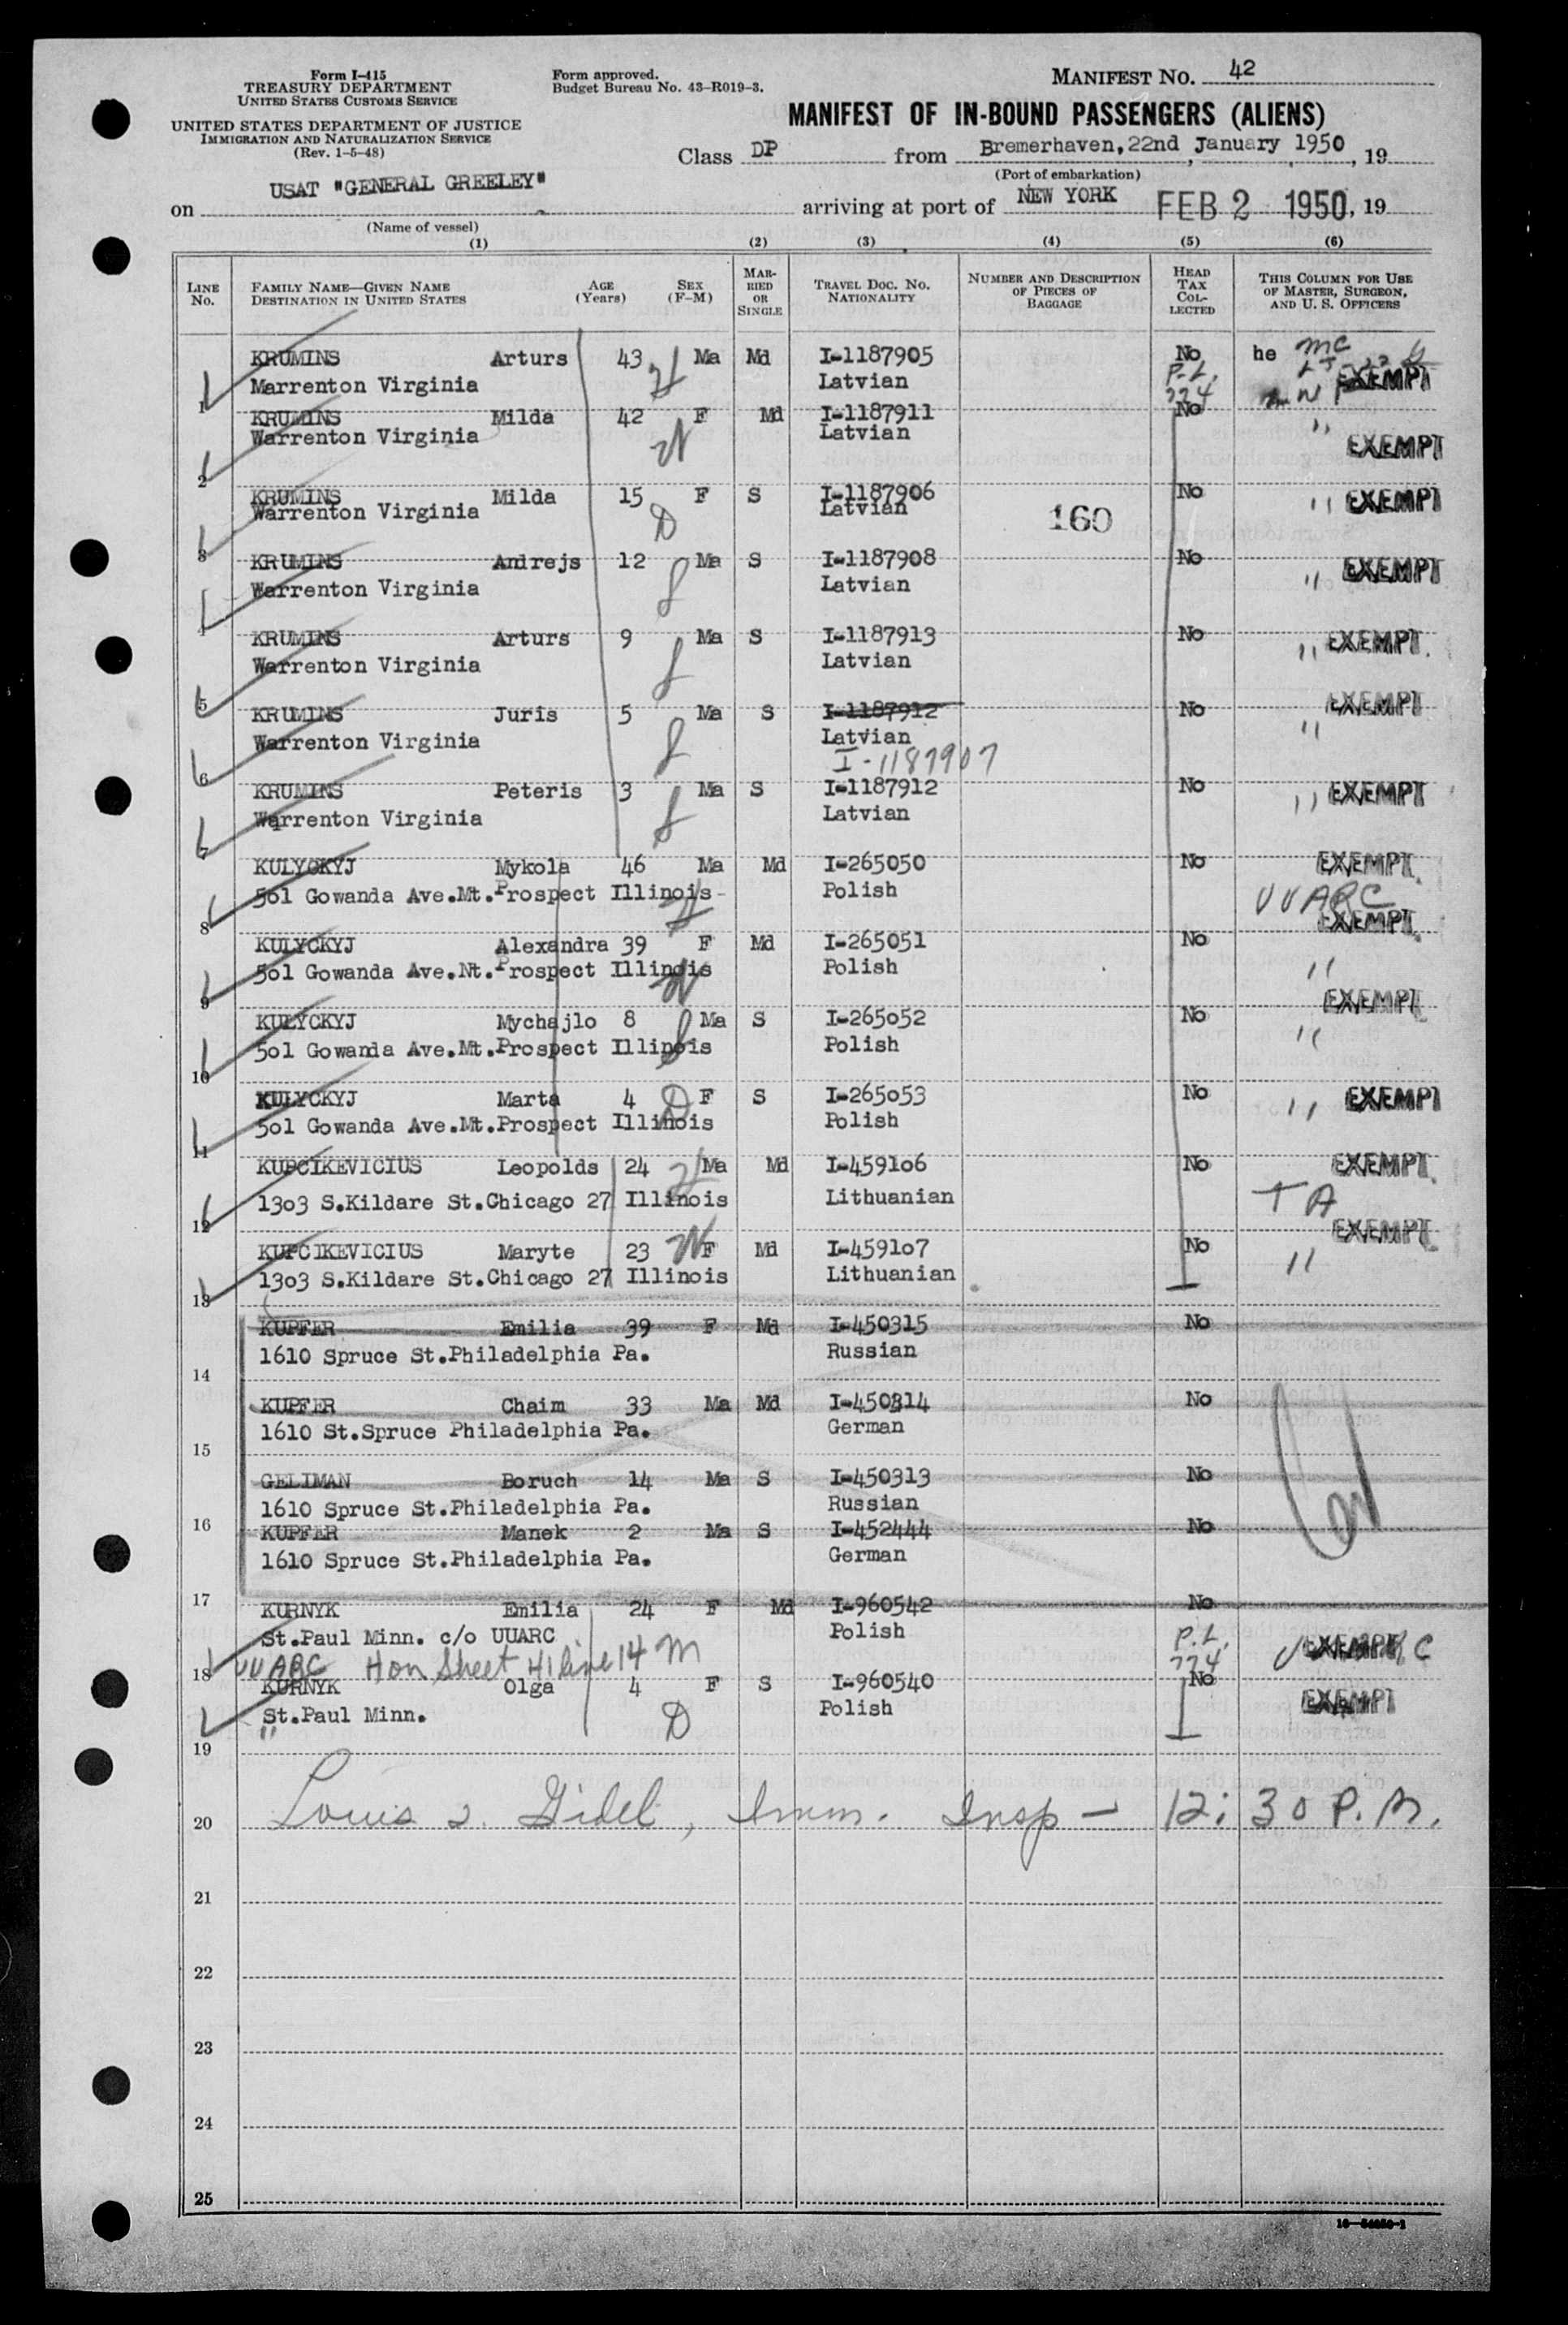 Form I-415
TREASURY DEPARTMENT
UNITED STATES CUSTOMS SERVICE
UNITED STATES DEPARTMENT OF JUSTICE
IMMIGRATION AND NATURALIZATION SERVICE
(Rev. 1-5-48)
Form approved.
Budget Bureau No. 43-R019-3.
MANIFEST No. 42
MANIFEST OF IN-BOUND PASSENGERS (ALIENS)
Class DP from Bremerhaven, 22nd January 1950, 19
(Port of embarkation)
on USAT "GENERAL GREELEY" arriving at port of NEW YORK FEB 2 1950, 19
(Name of vessel)
(1) (2) (3) (4) (5) (6)
LINE No. FAMILY NAME—GIVEN NAME DESTINATION IN UNITED STATES AGE (Years) SEX (F-M) MARRIED OR SINGLE TRAVEL DOC. No. NATIONALITY NUMBER AND DESCRIPTION OF PIECES OF BAGGAGE HEAD TAX COLLECTED THIS COLUMN FOR USE OF MASTER, SURGEON, AND U. S. OFFICERS
KRUMINS Arturs 43 Ma Md I-1187905 No he
1 Marrenton Virginia Latvian P.L. 774 EXEMPT
KRUMINS Milda 42 F Md I-1187911 No "
2 Warrenton Virginia Latvian EXEMPT
KRUMINS Milda 15 F S I-1187906 No " EXEMPT
3 Warrenton Virginia Latvian 160
KRUMINS Andrejs 12 Ma S I-1187908 No " EXEMPT
4 Warrenton Virginia Latvian
KRUMINS Arturs 9 Ma S I-1187913 No " EXEMPT
5 Warrenton Virginia Latvian
KRUMINS Juris 5 Ma S I-1187912 No " EXEMPT
6 Warrenton Virginia Latvian
I-1187907
KRUMINS Peteris 3 Ma S I-1187912 No " EXEMPT
7 Warrenton Virginia Latvian
KULYCKYJ Mykola 46 Ma Md I-265050 No EXEMPT
8 501 Gowanda Ave.Mt.Prospect Illinois Polish UUARC
KULYCKYJ Alexandra 39 F Md I-265051 No EXEMPT
9 501 Gowanda Ave.Nt.Prospect Illinois Polish "
KULYCKYJ Mychajlo 8 Ma S I-265052 No EXEMPT
10 501 Gowanda Ave.Mt.Prospect Illinois Polish "
KULYCKYJ Marta 4 D F S I-265053 No " EXEMPT
11 501 Gowanda Ave.Mt.Prospect Illinois Polish
KUPCIKEVICIUS Leopolds 24 Ma Md I-459106 No EXEMPT
12 1303 S.Kildare St.Chicago 27 Illinois Lithuanian T A
KUPCIKEVICIUS Maryte 23 F Md I-459107 No EXEMPT
13 1303 S.Kildare St.Chicago 27 Illinois Lithuanian "
KUPFER Emilia 39 F Md I-450315 No
14 1610 Spruce St.Philadelphia Pa. Russian
KUPFER Chaim 33 Ma Md I-450314 No
15 1610 St.Spruce Philadelphia Pa. German
GELIMAN Boruch 14 Ma S I-450313 No
16 1610 Spruce St.Philadelphia Pa. Russian
KUPFER Manek 2 Ma S I-452444 No
17 1610 Spruce St.Philadelphia Pa. German
KURNYK Emilia 24 F Md I-960542 No
St.Paul Minn. c/o UUARC Polish P.L. 774 EXEMPT
18 UUARC H on Sheet 41 line 14 M
KURNYK Olga 4 F S I-960540 No EXEMPT
19 St.Paul Minn. D Polish
20 Louis Gidel, Imm. Insp — 12:30 P.M.
21
22
23
24
25